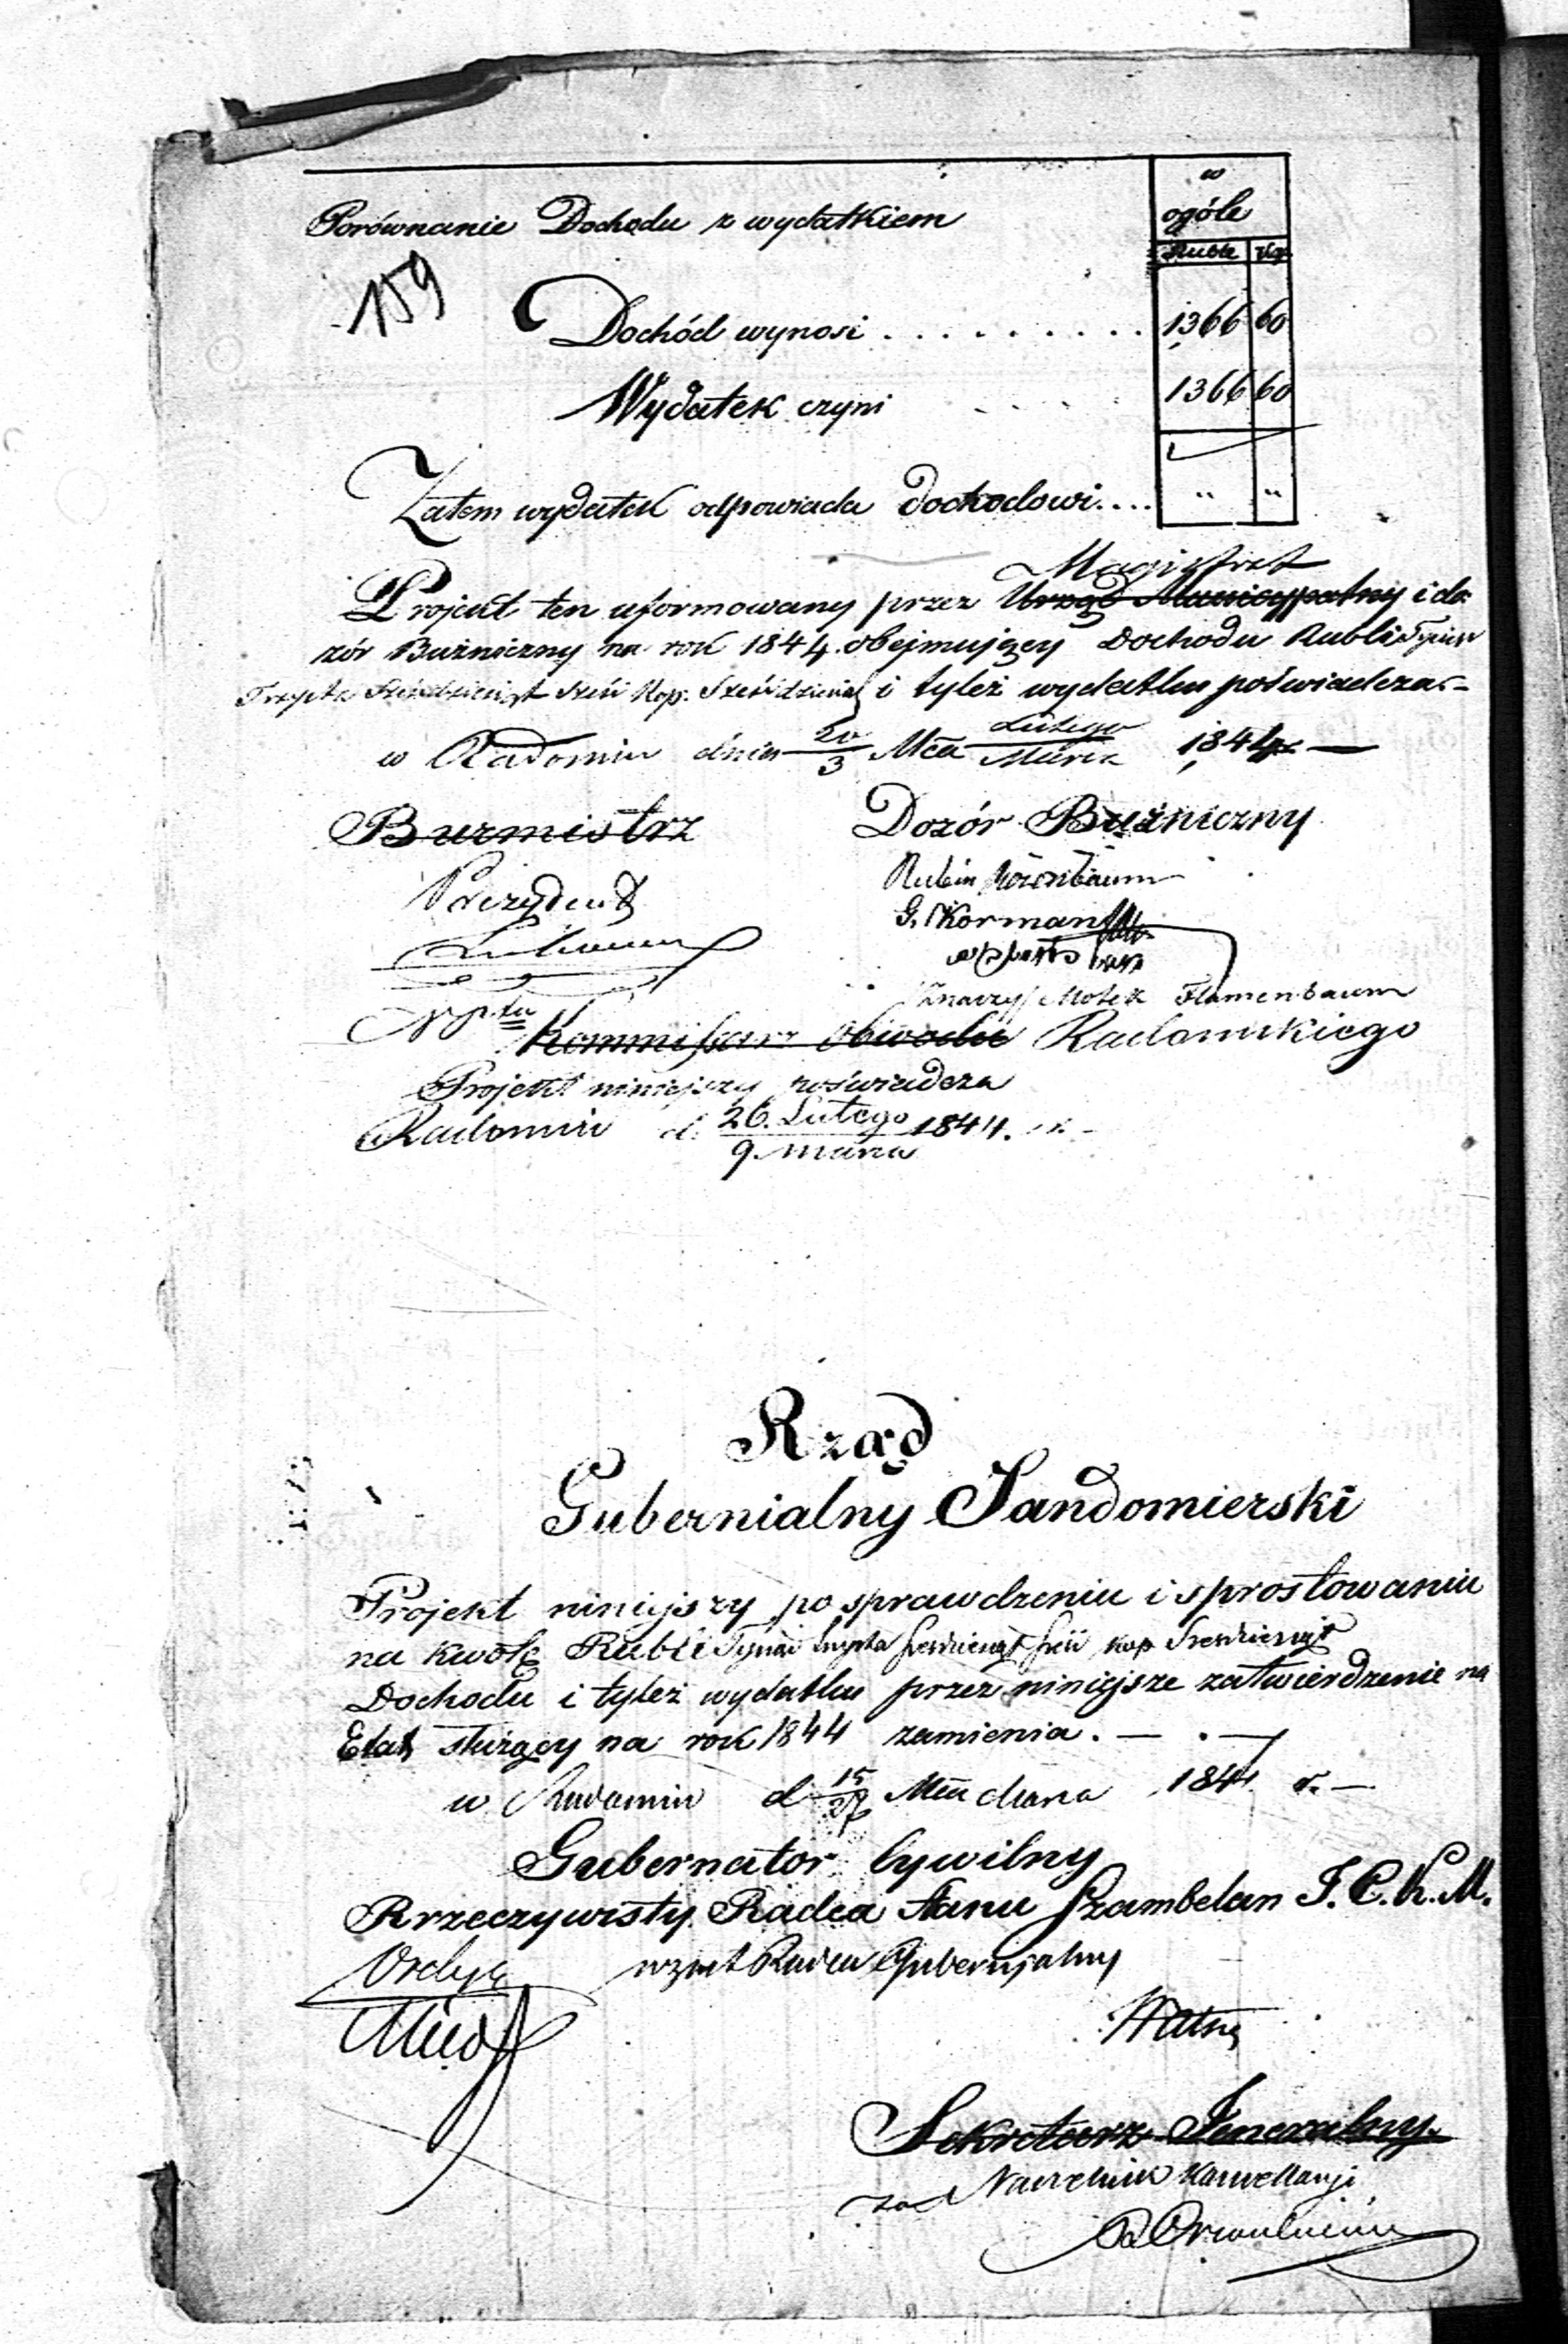 w
ogóle
Porównanie Dochodu z wydatkiem
Ruble
159
Dochód wynosi . . . . . . . . . 1366 60
Wydatek czyni . . . . 1366 60
Zatem wydatek odpowiada dochodowi.... " "
Magistrat
Projekt ten uformowany przez Urząd Municypalny i do
zór Bużniczny na rok 1844 obejmujący Dochodu Rubli Tysiąc
Trzysta Sześćdziesiąt Sześć Kop. Sześćdziesiąt i tyleż wydatku poświadcza
w Radomiu dnia 20/3 Mca Lutego/Marca 1844
Burmistrz Dozór Bużniczny
Prezydent Rubin
G. Korman
Znaczy Motek Flamenbaum
Kommissarz Obwodu Radomskiego
Projekt niniejszy poświadcza
Radomiu d. 26. Lutego/9. Marca 1844. r.
Rząd
Gubernialny Sandomierski
Projekt niniejszy po sprawdzeniu i sprostowaniu
na kwotę Rubli Tysiąc trzysta sześćdziesiąt sześć kop Sześćdziesiąt
Dochodu i tyleż wydatku przez niniejsze zatwierdzenie na
Etat służący na rok 1844 zamienia. — . —
w Radomiu d 15/27 Mca Marca 1844 r. —
Gubernator Cywilny
Rrzeczywisty Radca Stanu Szambelan J. C. K. M.
wzast Radca Gubernialny
Sekretarz Jeneralny.
za Naczelnik Kancellaryi